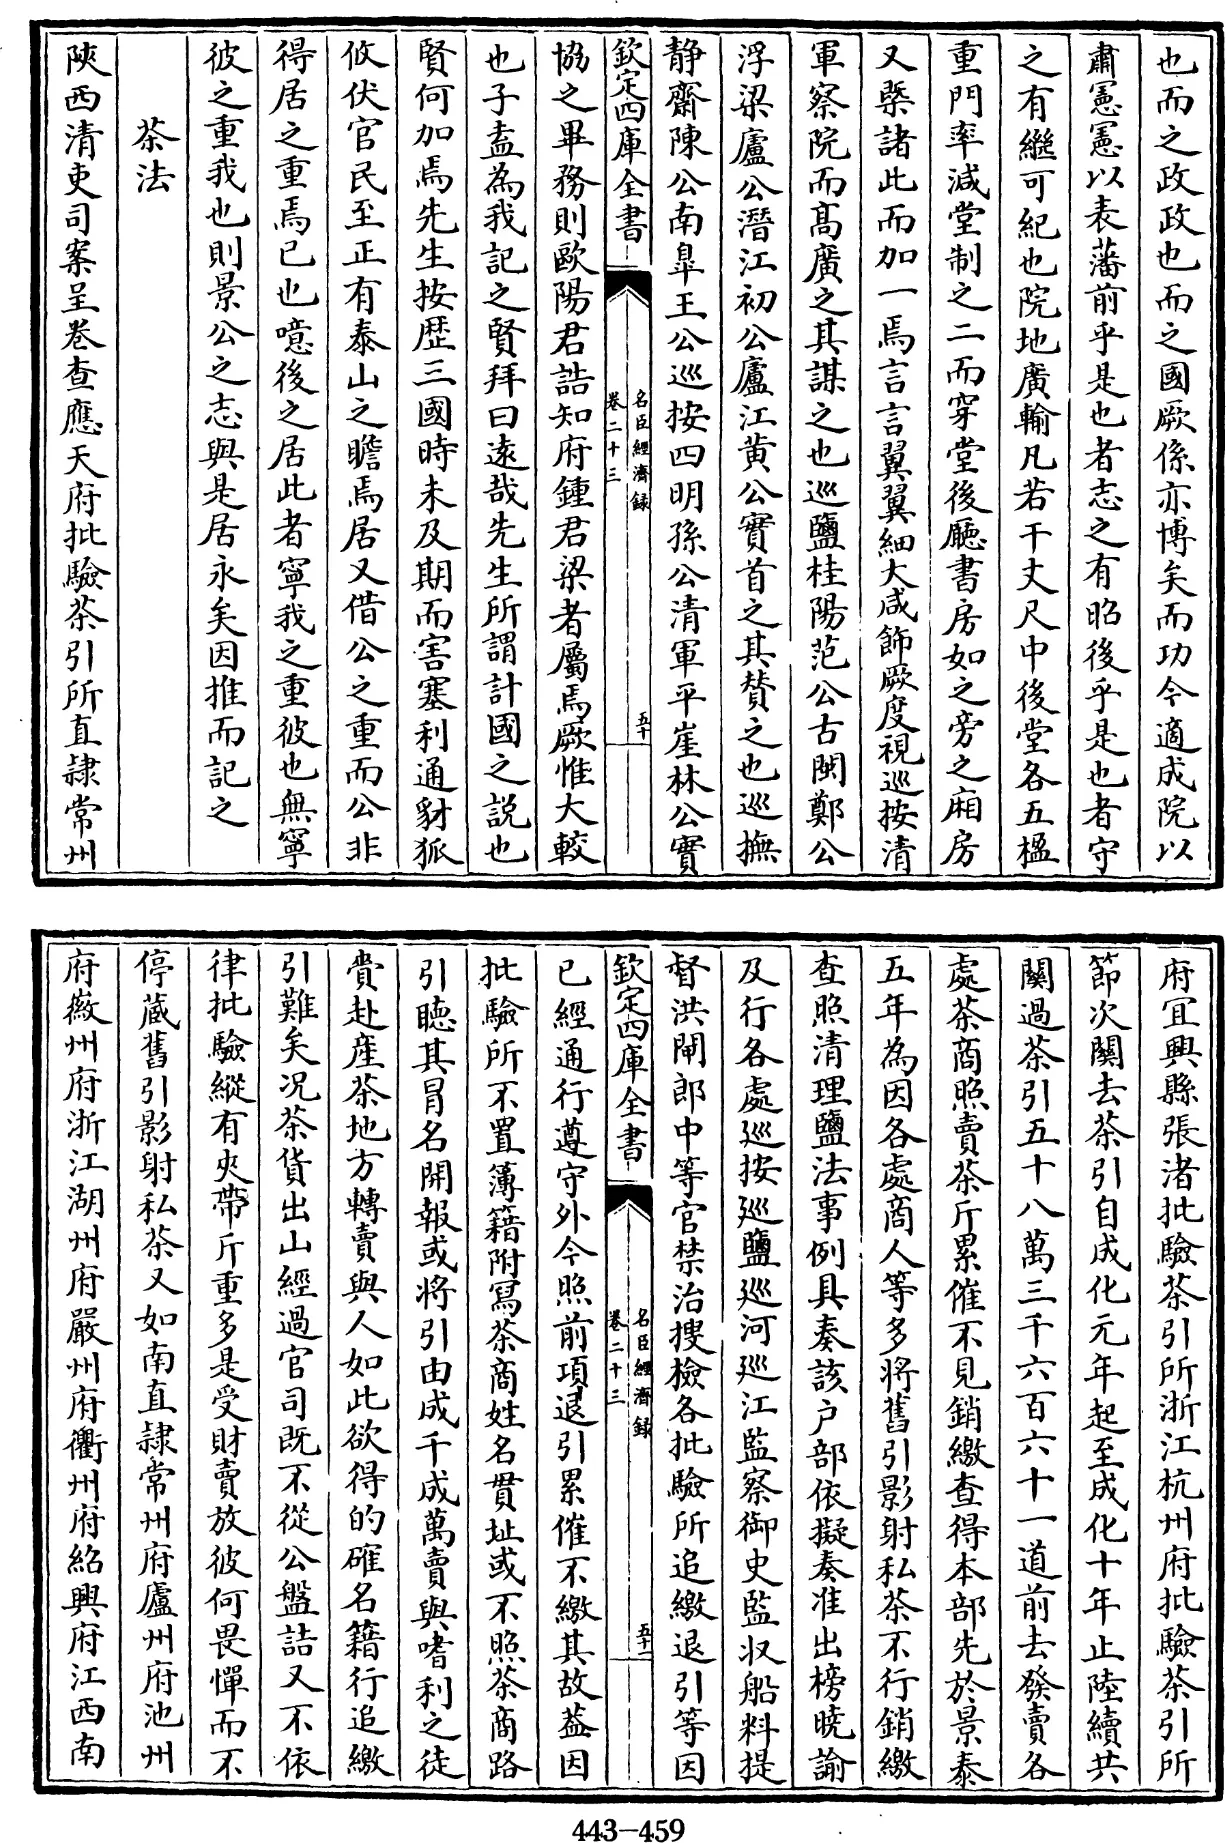 也而之政政也而之國厥係亦博矣而功今適成院以
肅憲憲以表藩前乎是也者志之有昭後乎是也者守
之有繼可紀也院地廣輪凡若干丈尺中後堂各五楹
重門率減堂制之二而穿堂後廳書房如之旁之廂房
又槩諸此而加一焉言言翼翼細大咸飾厥度視巡按清
軍察院而髙廣之其謀之也巡鹽桂陽范公古閩鄭公
浮梁廬公潛江初公廬江黄公實首之其賛之也巡撫
靜齋陳公南臯王公巡按四明孫公清軍平崖林公實
欽定四庫全書
名臣經濟録
卷二十三
五十
協之畢務則歐陽君誥知府鍾君梁者屬焉厥惟大較
也子盍為我記之賢拜曰逺哉先生所謂計國之説也
賢何加焉先生按歴三國時未及期而害塞利通豺狐
攸伏官民至正有泰山之瞻焉居又借公之重而公非
得居之重焉已也噫後之居此者寧我之重彼也無寧
彼之重我也則景公之志與是居永矣因推而記之
茶法
陜西清吏司案呈卷查應天府批驗茶引所直隷常州
府宜興縣張渚批驗茶引所浙江杭州府批驗茶引所
節次關去茶引自成化元年起至成化十年止陸續共
關過茶引五十八萬三千六百六十一道前去發賣各
處茶商照賣茶斤累催不見銷繳查得本部先於景泰
五年為因各處商人等多將舊引影射私茶不行銷繳
查照清理鹽法事例具奏該户部依擬奏准出榜曉諭
及行各處巡按巡鹽巡河巡江監察御史監収船料提
督洪閘郎中等官禁治搜檢各批驗所追繳退引等因
欽定四庫全書
名臣經濟録
卷二十三
五十一
已經通行遵守外今照前項退引累催不繳其故葢因
批驗所不置簿籍附寫茶商姓名貫址或不照茶商路
引聽其冒名開報或將引由成千成萬賣與嗜利之徒
賫赴産茶地方轉賣與人如此欲得的確名籍行追繳
引難矣况茶貨出山經過官司既不從公盤詰又不依
律批驗縱有夾帶斤重多是受財賣放彼何畏憚而不
停蔵舊引影射私茶又如南直隷常州府廬州府池州
府徽州府浙江湖州府嚴州府衢州府紹興府江西南
443-459